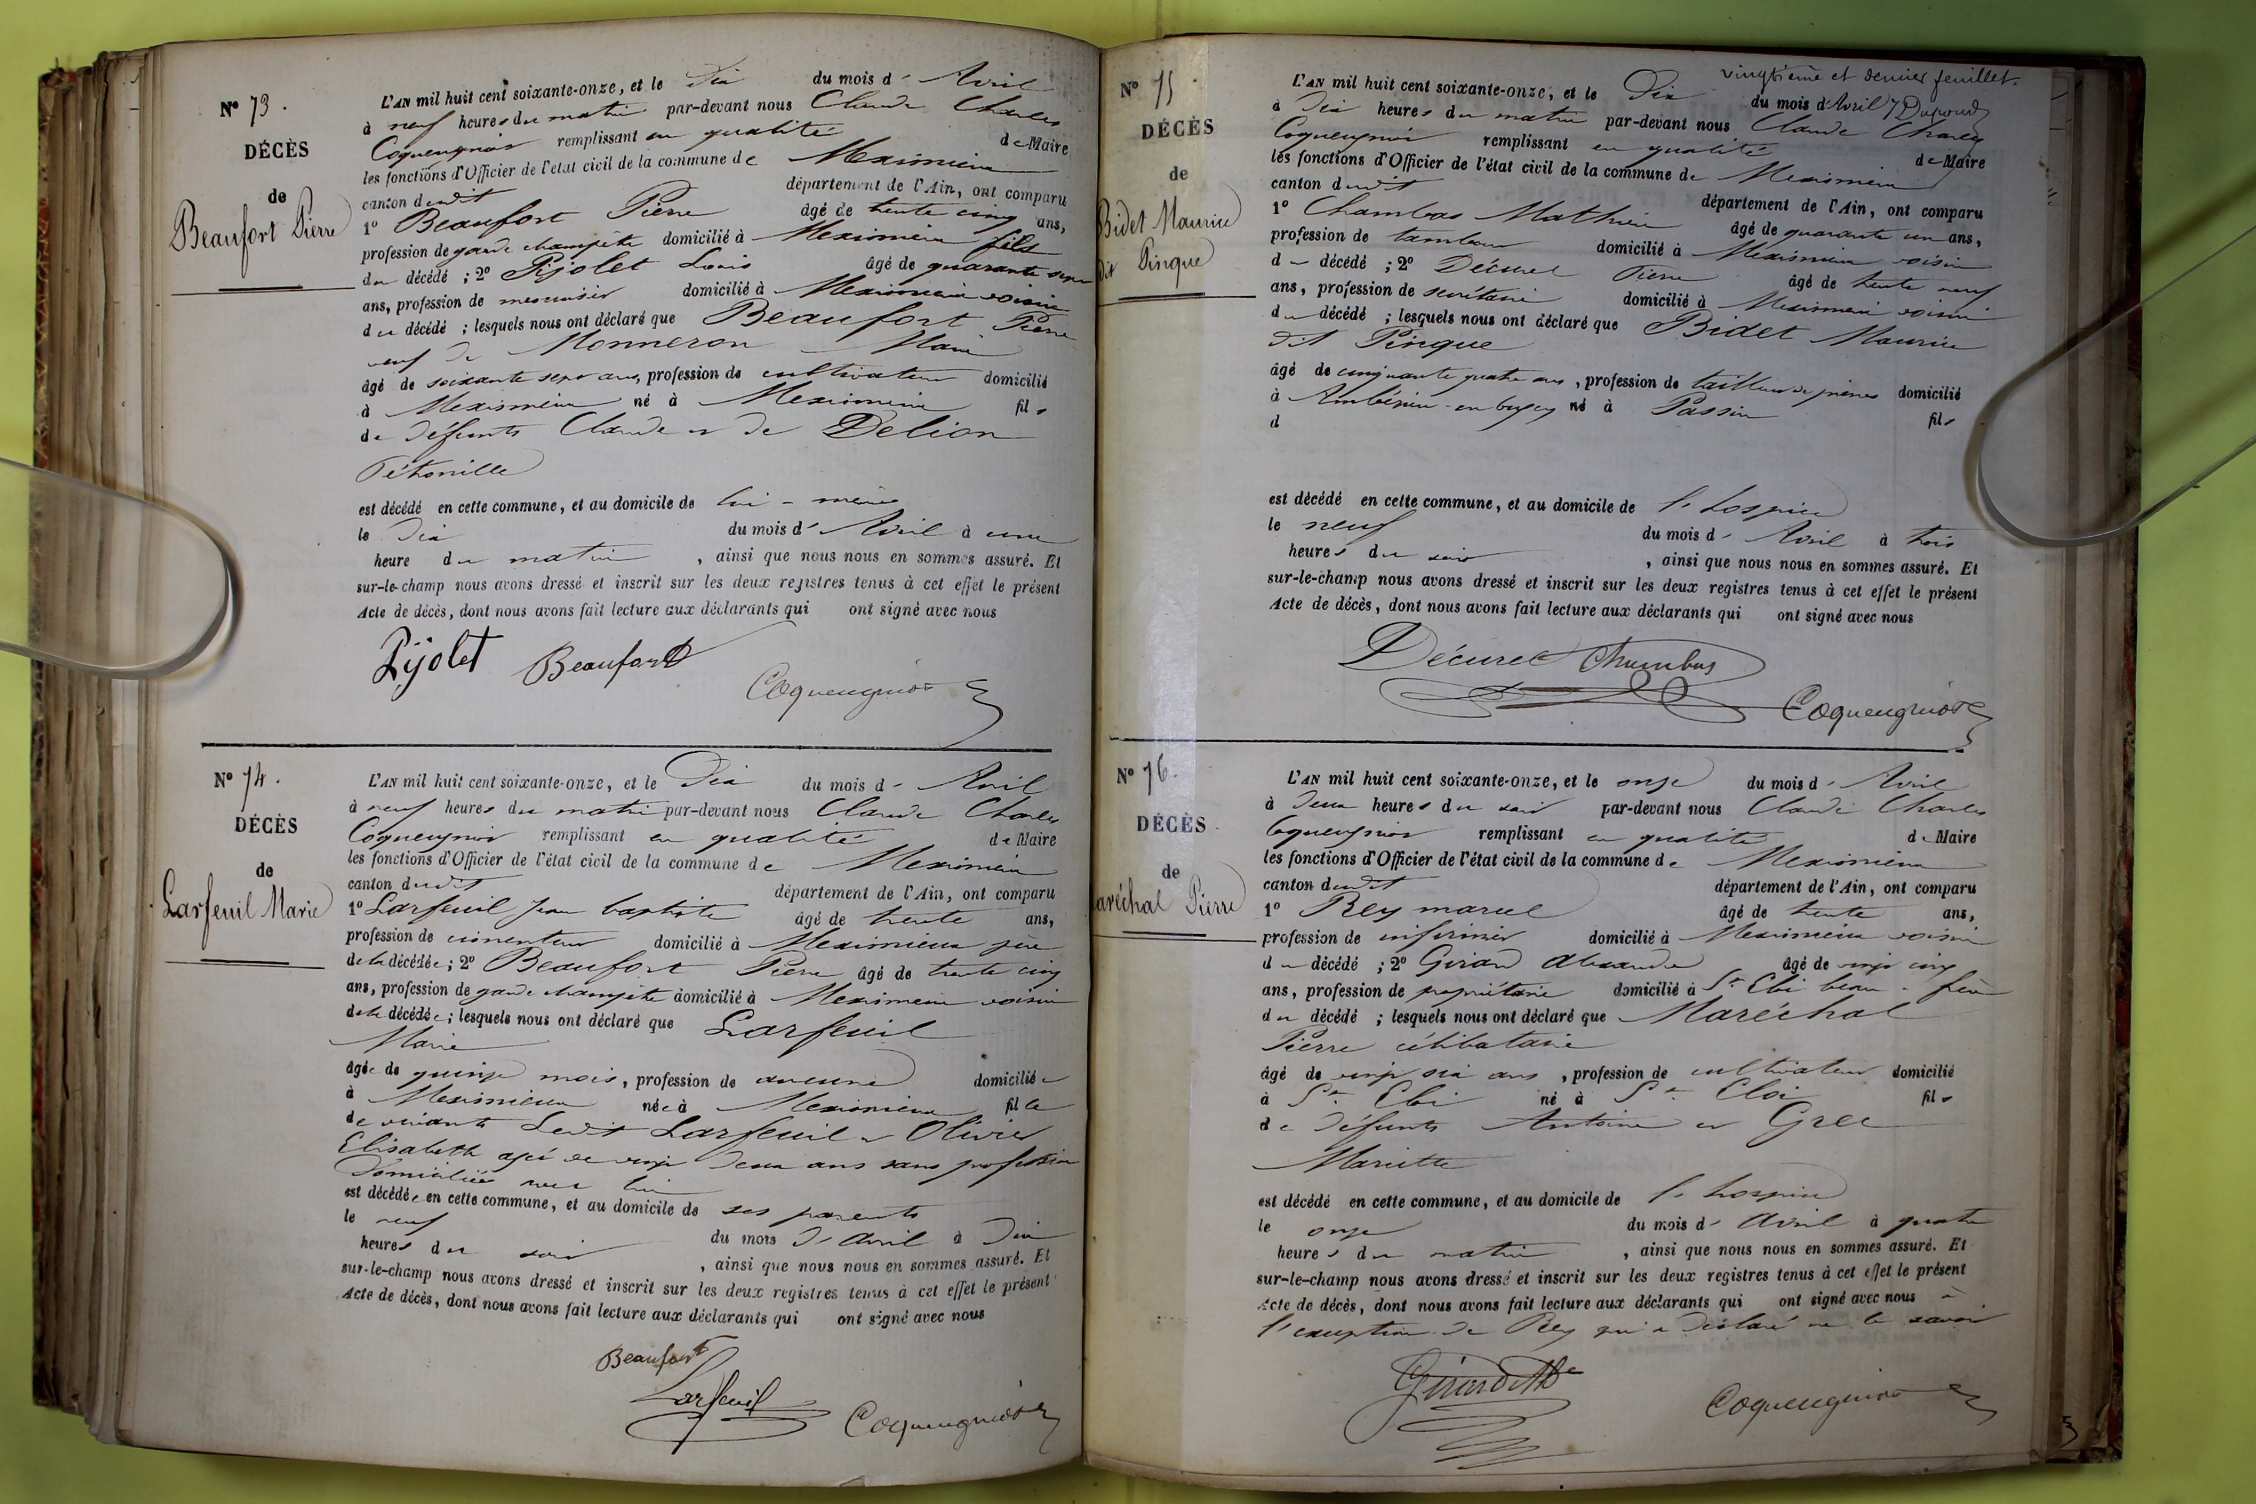 N° 73.
DÉCÈS
de
Beaufort Pierre
L'AN mil huit cent soixante-onze, et le Dix du mois d' Avril
à neuf heures du matin par-devant nous Claude Charles
Coqueugniot remplissant en qualité de Maire
les fonctions d'Officier de l'état civil de la commune de Meximieux
canton dudit département de l'Ain, ont comparu
1° Beaufort Pierre âgé de trente cinq ans,
profession de garde champêtre domicilié à Meximieux fils
du décédé ; 2° Pijolet Louis âgé de quarante sept
ans, profession de menuisier domicilié à Meximieux voisin
du décédé ; lesquels nous ont déclaré que Beaufort Pierre
veuf de Monneron Marie
âgé de soixante sept ans, profession de cultivateur domicilié
à Meximieux né à Meximieux fils
de défunts Claude et de Delion
Pétronille
est décédé en cette commune, et au domicile de lui-même
le Dix du mois d' Avril à une
heure du matin , ainsi que nous nous en sommes assuré. Et
sur-le-champ nous avons dressé et inscrit sur les deux registres tenus à cet effet le présent
Acte de décès, dont nous avons fait lecture aux déclarants qui ont signé avec nous
Pijolet Beaufort
Coqueugniot
N° 74.
DÉCÈS
de
Larfeuil Marie
L'AN mil huit cent soixante-onze, et le Dix du mois d' Avril
à neuf heures du matin par-devant nous Claude Charles
Coqueugniot remplissant en qualité de Maire
les fonctions d'Officier de l'état civil de la commune de Meximieux
canton dudit département de l'Ain, ont comparu
1° Larfeuil Jean baptiste âgé de trente ans,
profession de cimenteur domicilié à Meximieux père
de la décédée ; 2° Beaufort Pierre âgé de trente cinq
ans, profession de garde champêtre domicilié à Meximieux voisin
de la décédée ; lesquels nous ont déclaré que Larfeuil
Marie
âgée de quinze mois, profession de aucune domiciliée
à Meximieux née à Meximieux fille
de vivants Ledit Larfeuil et Olivier
Elisabeth agée de vingt deux ans sans profession
domiciliée avec lui
est décédée en cette commune, et au domicile de ses parents
le neuf du mois d' Avril à Dix
heures du soir , ainsi que nous nous en sommes assuré. Et
sur-le-champ nous avons dressé et inscrit sur les deux registres tenus à cet effet le présent
Acte de décès, dont nous avons fait lecture aux déclarants qui ont signé avec nous
Beaufort
Larfeuil
Coqueugniot
vingtième et dernier feuillet.
N° 75
DÉCÈS
de
Bidet Maurice
dit Pinque
L'AN mil huit cent soixante-onze, et le Dix du mois d'Avril
à Dix heures du matin par-devant nous Claude Charles
Coqueugniot remplissant en qualité de Maire
les fonctions d'Officier de l'état civil de la commune de Meximieux
canton dudit département de l'Ain, ont comparu
1° Chambas Mathieu âgé de quarante un ans,
profession de tambour domicilié à Meximieux voisin
du décédé ; 2° Décurel Pierre âgé de trente neuf
ans, profession de secrétaire domicilié à Meximieux voisin
du décédé ; lesquels nous ont déclaré que Bidet Maurice
dit Pinque
âgé de cinquante quatre ans, profession de tailleur de pierres domicilié
à Ambérieu-en-bugey né à Passin fils
d
est décédé en cette commune, et au domicile de l'hospice
le neuf du mois d' Avril à trois
heures du soir , ainsi que nous nous en sommes assuré. Et
sur-le-champ nous avons dressé et inscrit sur les deux registres tenus à cet effet le présent
Acte de décès, dont nous avons fait lecture aux déclarants qui ont signé avec nous
Décurel Chambas
Coqueugniot
N° 76.
DÉCÈS
de
aréchal Pierre
L'AN mil huit cent soixante-onze, et le onze du mois d' Avril
à deux heures du soir par-devant nous Claude Charles
Coqueugniot remplissant en qualité de Maire
les fonctions d'Officier de l'état civil de la commune de Meximieux
canton dudit département de l'Ain, ont comparu
1° Rey marcel âgé de trente ans,
profession de infirmier domicilié à Meximieux voisin
du décédé ; 2° Girard Alexandre âgé de vingt cinq
ans, profession de propriétaire domicilié à St Eloi beau-frère
du décédé ; lesquels nous ont déclaré que Maréchal
Pierre célibataire
âgé de vingt six ans, profession de cultivateur domicilié
à St Eloi né à St Eloi fils
de défunts Antoine et Grec
Mariette
est décédé en cette commune, et au domicile de l'hospice
le onze du mois d' Avril à quatre
heures du matin , ainsi que nous nous en sommes assuré. Et
sur-le-champ nous avons dressé et inscrit sur les deux registres tenus à cet effet le présent
Acte de décès, dont nous avons fait lecture aux déclarants qui ont signé avec nous à
l'exception de Rey qui a déclaré ne le savoir
Girard
Coqueugniot